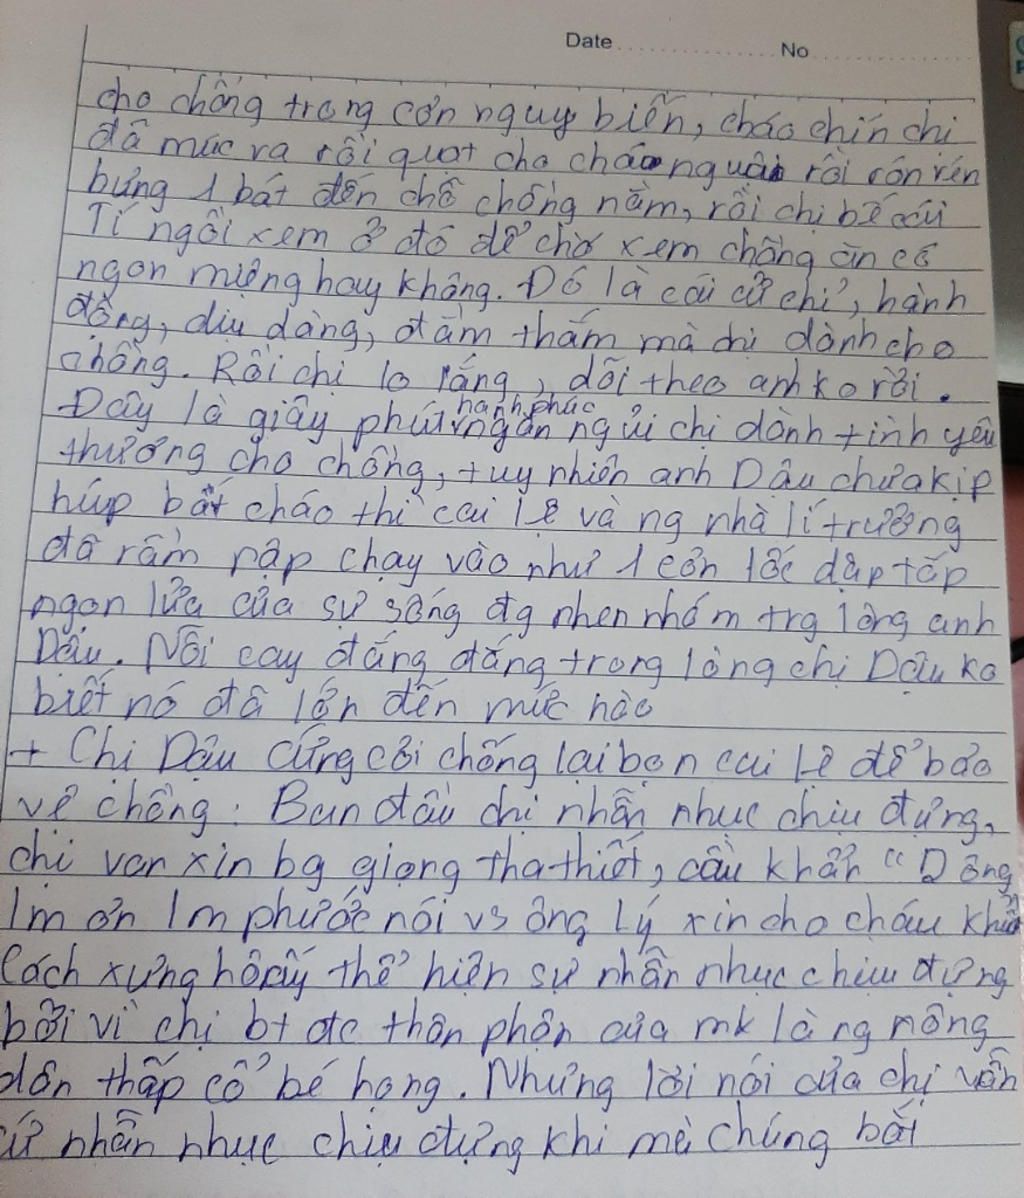 Date No
cho chồng trong cơn nguy biến, cháo chín chị
đã múc ra rồi quạt cho cháo nguội rồi rón rén
bưng 1 bát đến chỗ chồng nằm, rồi chị bế cái
Tí ngồi xem ở đó để chờ xem chồng ăn có
ngon miệng hay không. Đó là cái cử chỉ, hành
động, dịu dàng, đằm thắm mà chị dành cho
chồng. Rồi chị lo lắng, dõi theo anh ko rời.
Đây là giây phút hạnh phúc ngắn ngủi chị dành tình yêu
thương cho chồng, tuy nhiên anh Dậu chưa kịp
húp bát cháo thì cai lệ và ng nhà lí trưởng
đã rầm rập chạy vào như 1 cơn lốc dập tắp
ngọn lửa của sự sống đg nhen nhóm trg lòng anh
Dậu. Nỗi cay đắng đắng trong lòng chị Dậu ko
biết nó đã lớn đến mức nào
+ Chị Dậu cứng cỏi chống lại bọn cai lệ để bảo
vệ chồng: Ban đầu chị nhẫn nhục chịu đựng,
chị van xin bg giọng tha thiết, cầu khẩn "Dông
lm ơn lm phước nói vs ông Lý xin cho cháu khất
Cách xưng hô ấy thể hiện sự nhẫn nhục chịu đựng
bởi vì chị bt đc thân phận của mk là ng nông
dân thấp cổ bé họng. Nhưng lời nói của chị vẫn
cứ nhẫn nhục chịu đựng khi mà chúng bắt